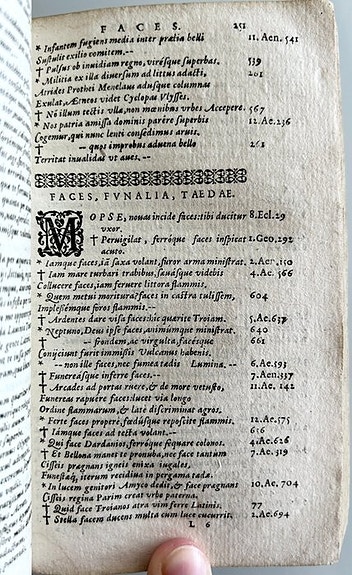 FACES. 251
* Infantem fugiens media inter prælia belli 11. Aen. 541
Sustulit exilio comitem.--
† Pulsus ob inuidiam regno, virésque superbas. 539
* Militia ex illa diuersum ad littus adacti, 261
Atrides Prothei Menelaus adusque columnas
Exulat, Ætneos videt Cyclopas Vlysses.
† Nō illum tectis vllæ, non mœnibus vrbes Accepere. 567
* Nos patria amissa dominis parēre superbis 12. Ae. 236
Cogemur, qui nunc lenti consedimus aruis.
† -- quos improbus aduena bello 261
Territat inualidas vt aues.--
FACES, FVNALIA, TAEDAE.
MOPSE, nouas incide faces: tibi ducitur 8. Ecl. 29
vxor.
† Peruigilat, ferróque faces inspicat 1. Geo. 292
acuto.
* Iamque faces, & saxa volant, furor arma ministrat. 1. Aen. 150
† Iam mare turbari trabibus, sæuásque videbis 4. Ae. 566
Collucere faces, iam feruere littora flammis.
* Quem metus moritura? faces in castra tulissem, 604
Implessémque foros flammis.--
† Ardentes dare visa faces: hic quærite Troiam. 5. Ae. 637
* Neptuno, Deus ipse faces, animúmque ministrat. 640
† -- frondem, ac virgulta, facésque 661
Coniiciunt furit immissis Vulcanus habenis.
* -- non ille faces, nec fumea tædis Lumina. -- 6. Ae. 593
† Funereásque inferre faces.-- 7. Aen. 337
* Arcades ad portas ruere, & de more vetusto, 11. Ae. 142
Funereas rapuére faces: lucet via longo
Ordine flammarum, & late discriminat agros.
* Ferte faces properé, fœdúsque reposcite flammis. 12. Ae. 573
† Iámque faces ad tecta volant.-- 656
* Qui face Dardanios, ferróque sequare colonos. 4. Ae. 626
† Et Bellona manet te pronuba, nec face tantum 7. Ae. 319
Cisseis prægnans ignes enixa iugales.
Funestæq, iterum recidiua in pergama tædæ.
* In lucem genitori Amyco dedit, & face prægnans 10. Ae. 704
Cisseis regina Parim creat vrbe paterna.
† Quid face Troianos atra vim ferre Latinis. 77
† Stella facem ducens multa cum luce cucurrit. 2. Ae. 694
L 6